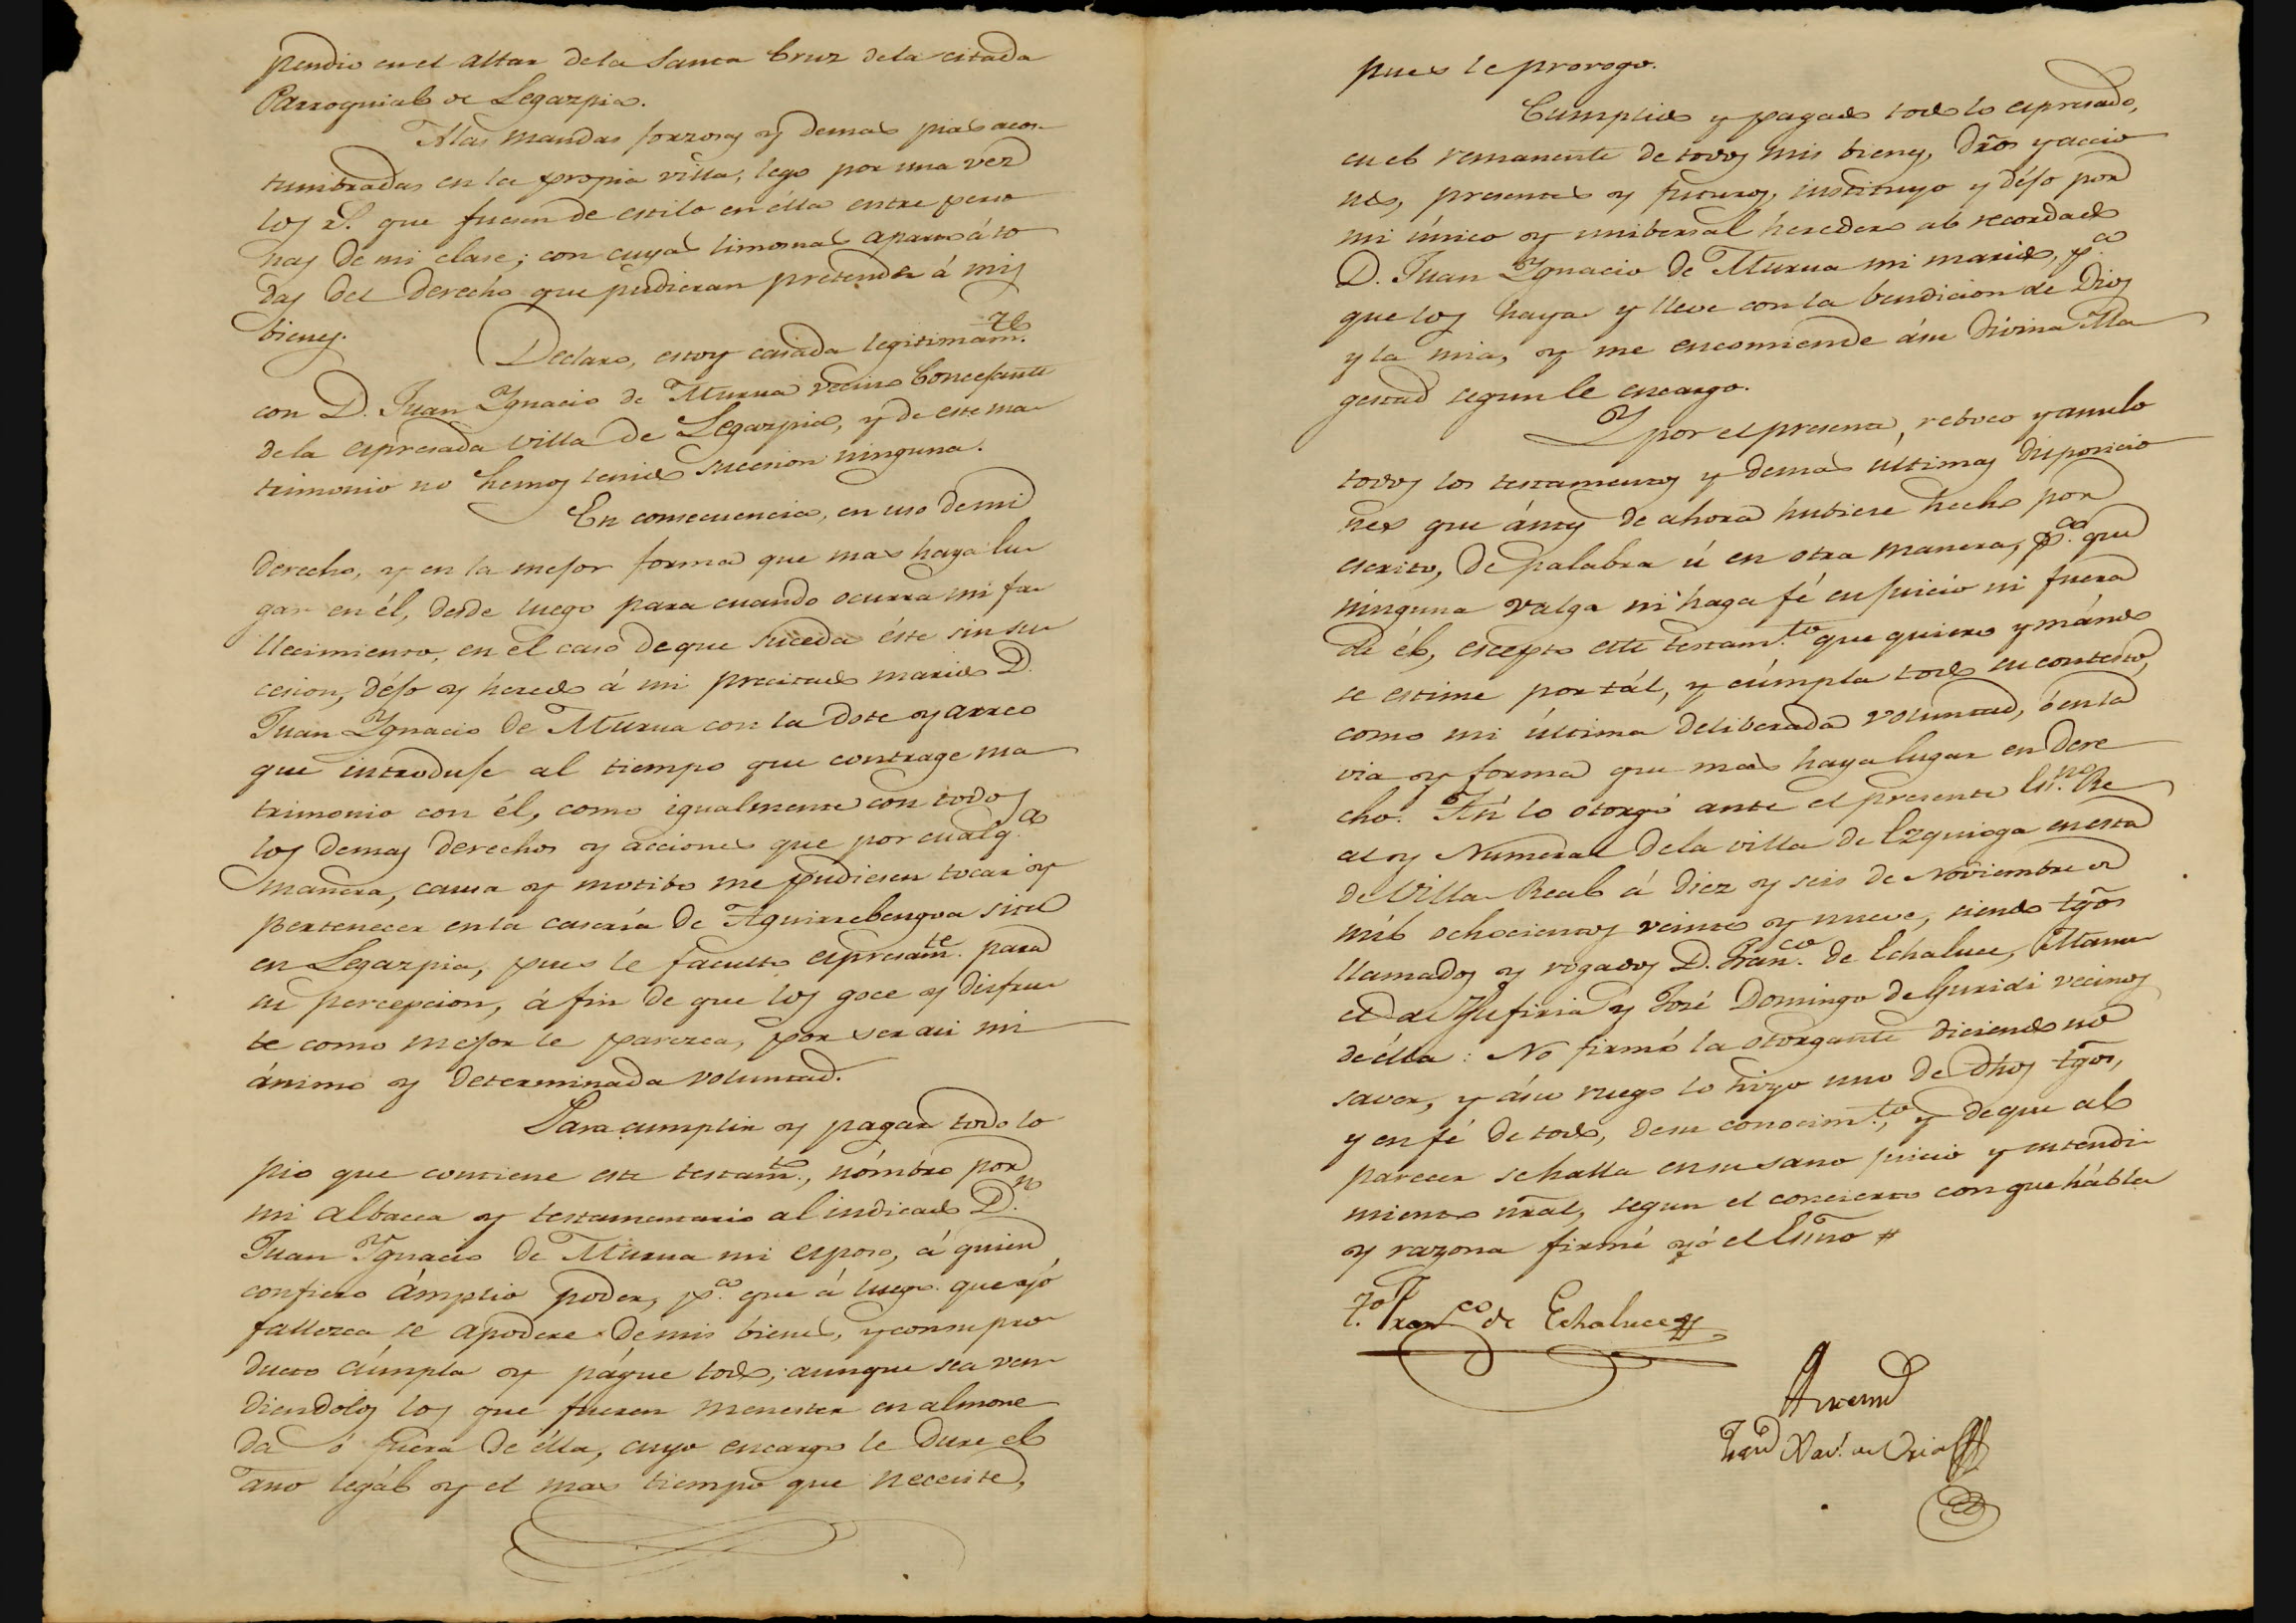 pendio en el altar dela Santa Cruz dela citada
Parroquial de Legazpia.
A las mandas forzosas y demas pias acos-
tumbradas en la propia villa, lego por una vez
los rs. que fuesen de estilo en élla entre perso
nas de mi clase; con cuyas limosnas aparto á to
das del derecho que pudieran pretender á mis
bienes.
Declaro, estoy casada legitimamte.
con D. Juan Ygnacio de Murua vecino Concejante
dela espresada villa de Legazpia, y de este ma-
trimonio no hemos tenido sucesion ninguna.
En consecuencia, en uso de mi
derecho, y en la mejor forma que mas haya lu-
gar en él, desde luego para cuando ocurra mi fa-
llecimiento, en el caso de que suceda éste sin su-
cesion, déjo y heredo á mi precitado marido D.
Juan Ygnacio de Murua con la dote y arreo
que introduje al tiempo que contrage ma-
trimonio con él, como igualmente con todos
los demas derechos y acciones que por cualqa.
manera, causa y motibo me pudiesen tocar y
pertenecer en la casería de Aguirrebengoa sita
en Legazpia, pues le faculto espresamte. para
su percepcion, á fin de que los goce y disfru-
te como mejor le parezca, por ser asi mi
ánimo y determinada voluntad.
Para cumplir y pagar todo lo
pio que contiene este testamto., nómbro por
mi albacea y testamentario al indicado Dn.
Juan Ygnacio de Murua mi esposo, á quien
confiero ámplio poder, pa. que á luego que yó
fallezca se apodere de mis bienes, y con su pro-
ducto cúmpla y págue todo, aunque sea ven-
diendolos los que fueren menester en almone-
da ó fuera de élla, cuyo encargo le dure el
año legál y el mas tiempo que necesite,
pues le prorogo.
Cumplido y pagado todo lo espresado,
en el remanente de todos mis bienes, dros y accio
nes, presentes y futuros, instituyo y déjo por
mi único y unibersal heredero al recordado
D. Juan Ygnacio de Murua mi marido, pa.
que los haya y lleve con la bendicion de Dios
y la mia, y me encomiende ásu Divina Ma-
gestad segun le encargo.
Y por el presente, reboco y anulo
todos los testamentos y demas ultimas disposicio
nes que ántes de ahora hubiese hecho por
escrito, de palabra ú en otra manera, pa. que
ninguna valga ni haga fé en juicio ni fuera
de él, escepto este testamto. que quiero y mándo
se estime por tál, y cúmpla todo su contesto,
como mi última deliberada voluntad, ó en la
via y forma que mas haya lugar en dere
cho. Asi lo otorgó ante el presente Esno. Re
al y Numeral dela villa de Ezquioga en esta
de Villa Real á diez y seis de Noviembre de
mil ochocientos veinte y nueve, siendo tgõs
llamados y rogados D. Franco. de Echaluce, Manu
el de Yrefiria y José Domingo de Guridi vecinos
de élla: No firmó la otorgante diciendo no
saver, y ásu ruego lo hizo uno de dhos tgõs,
y en fé de todo, desu conocimto., y de que al
parecer se halla en su sano juicio y entendi-
miento nrãl, segun el concierto con que hábla
y razona firmé yó el Esno #
To. Franco. de Echaluce
Antemi